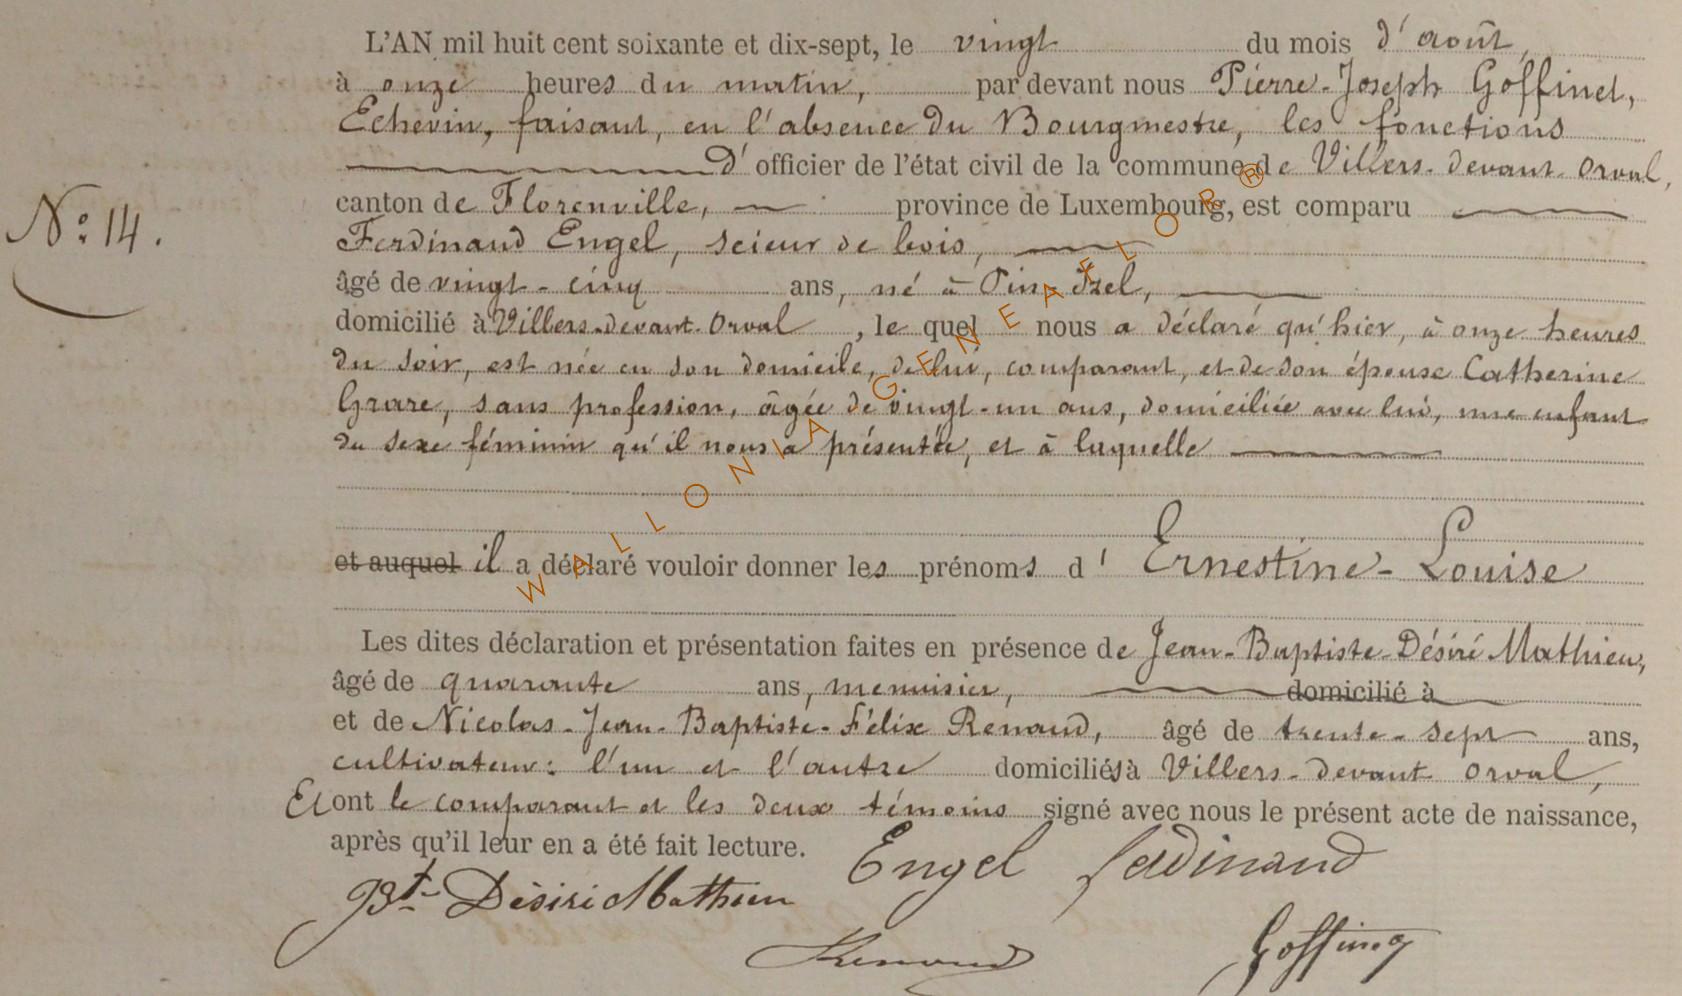 L'AN mil huit cent soixante et dix-sept, le vingt du mois d'août,
à onze heures du matin, par devant nous Pierre-Joseph Goffinet,
Echevin, faisant, en l'absence du Bourgmestre, les fonctions
D'officier de l'état civil de la commune de Villers-devant-Orval,
canton de Florenville, province de Luxembourg, est comparu
N° 14.
Ferdinand Engel, scieur de bois,
âgé de vingt-cinq ans, né à Pin-Izel,
domicilié à Villers-devant-Orval, lequel nous a déclaré qu'hier, à onze heures
du soir, est née en son domicile, de lui, comparant, et de son épouse Catherine
Grare, sans profession, âgée de vingt-un ans, domiciliée avec lui, une enfant
du sexe féminin qu'il nous a présentée, et à laquelle
et auquel il a déclaré vouloir donner les prénoms d'Ernestine-Louise
Les dites déclaration et présentation faites en présence de Jean-Baptiste-Désiré Mathieu,
âgé de quarante ans, menuisier, domicilié à
et de Nicolas-Jean-Baptiste-Félix Renaud, âgé de trente-sept ans,
cultivateur: l'un et l'autre domiciliés à Villers-devant Orval,
Et ont le comparant et les deux témoins signé avec nous le présent acte de naissance,
après qu'il leur en a été fait lecture. Engel ferdinand
Bte Désiré Mathieu
Renaud Goffinet
WALLONIA GENEAFLOR®